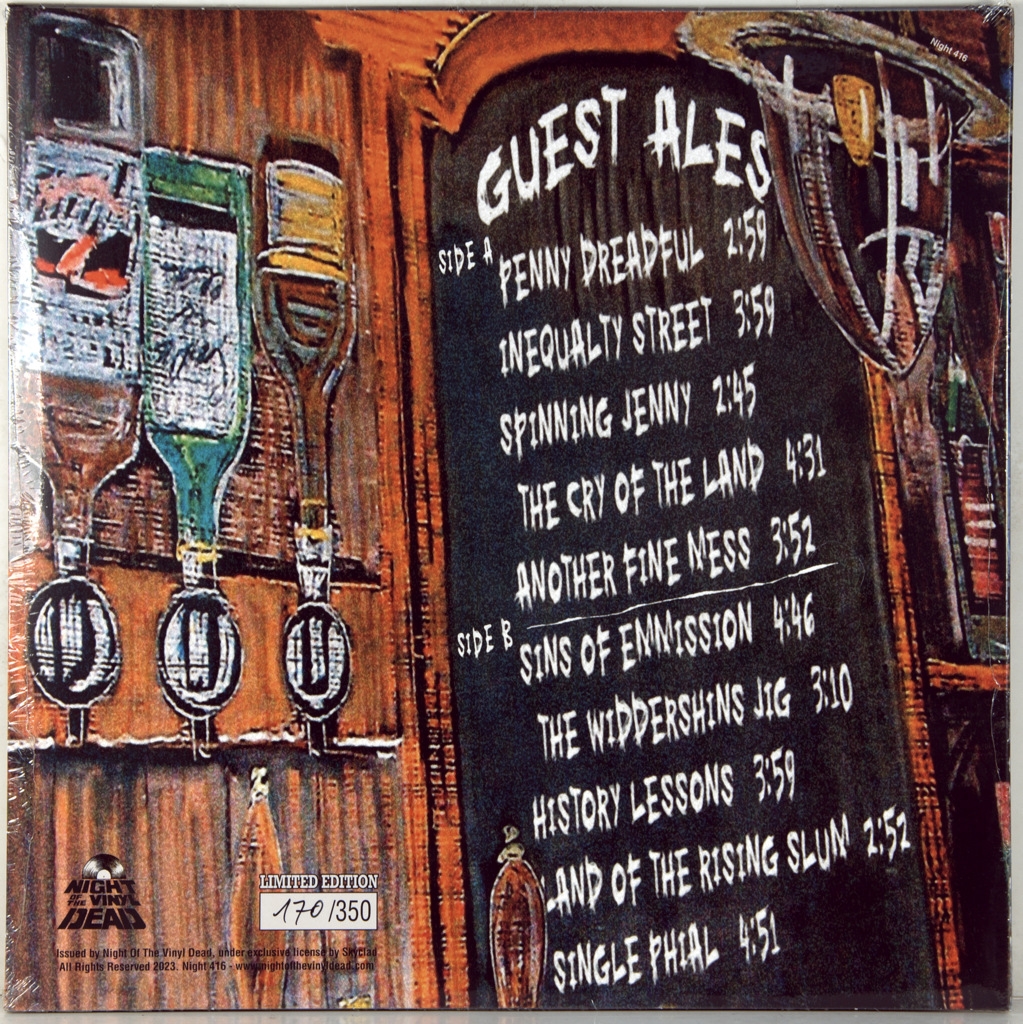 Night 416
GUEST ALES
SIDE A
PENNY DREADFUL 2:59
INEQUALTY STREET 3:59
SPINNING JENNY 2:45
THE CRY OF THE LAND 4:31
ANOTHER FINE MESS 3:52
SIDE B
SINS OF EMMISSION 4:46
THE WIDDERSHINS JIG 3:10
HISTORY LESSONS 3:59
LAND OF THE RISING SLUM 2:52
SINGLE PHIAL 4:51
NIGHT
OF THE VINYL
DEAD
LIMITED EDITION
170/350
Issued by Night Of The Vinyl Dead, under exclusive license by Skyclad
All Rights Reserved 2023. Night 416 - www.nightofthevinyldead.com